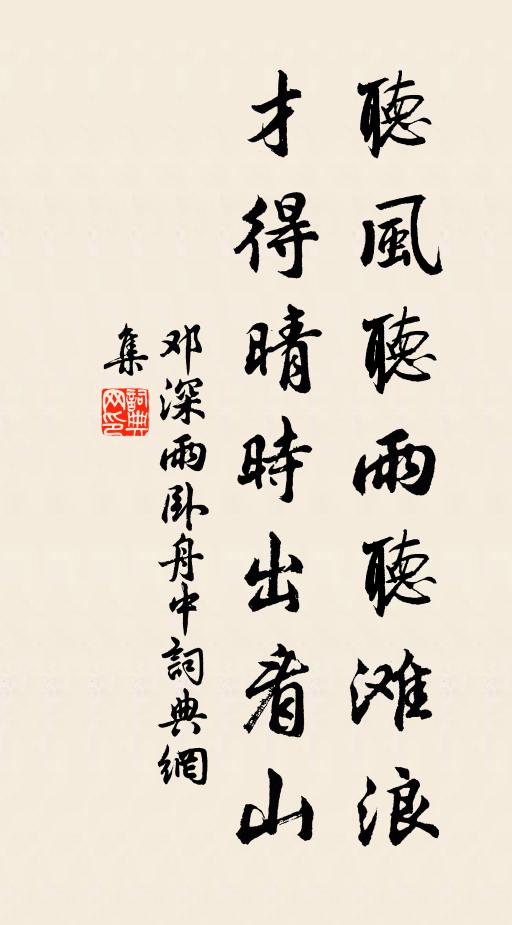 聽風聽雨聽滩浪
才得晴時出看山
邓深雨卧舟中詞典網
集
詞典
网印